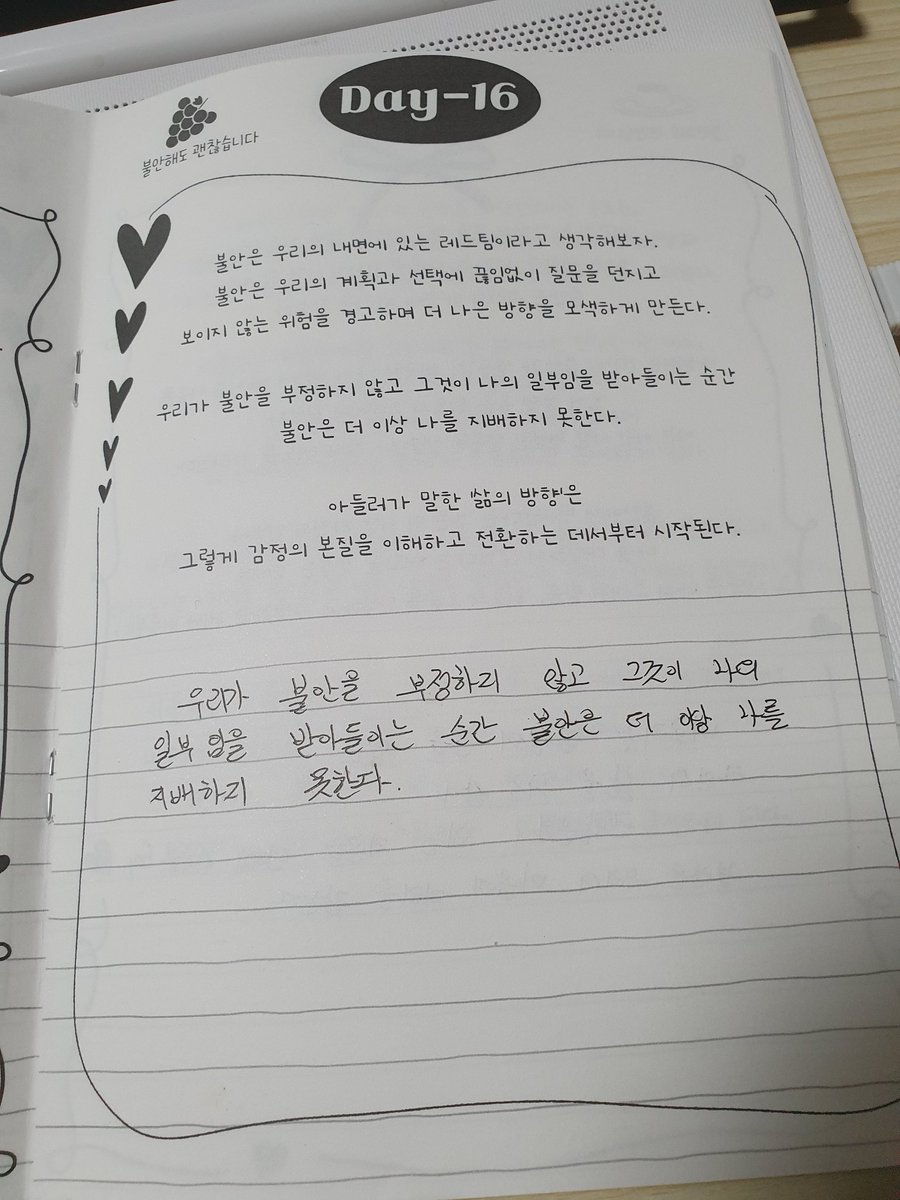 Day-16
불안해도 괜찮습니다
불안은 우리의 내면에 있는 레드팀이라고 생각해보자.
불안은 우리의 계획과 선택에 끊임없이 질문을 던지고
보이지 않는 위험을 경고하며 더 나은 방향을 모색하게 만든다.
우리가 불안을 부정하지 않고 그것이 나의 일부임을 받아들이는 순간
불안은 더 이상 나를 지배하지 못한다.
아들러가 말한 '삶의 방향'은
그렇게 감정의 본질을 이해하고 전환하는 데서부터 시작된다.
우리가 불안을 부정하지 않고 그것이 나의
일부 임을 받아들이는 순간 불안은 더 이상 나를
지배하지 못한다.